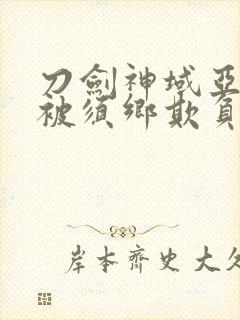 刀劍神域亞
被須鄉欺負
岸本齊史大久